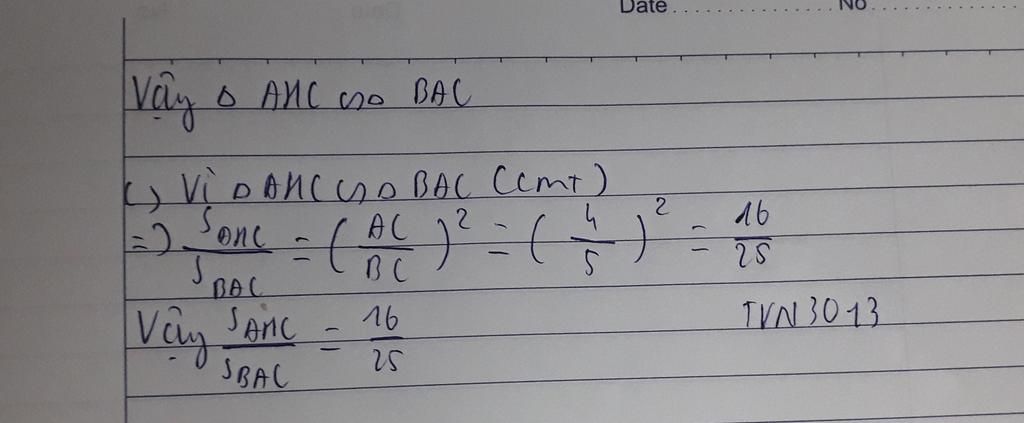 Date ........... No ...........
Vậy Δ AHC ∽ Δ BAC
c) Vì Δ AHC ∽ Δ BAC (cmt)
=> S_AHC / S_BAC = (AC / BC)² = (4 / 5)² = 16 / 25
Vậy S_AHC / S_BAC = 16 / 25
TVN3013